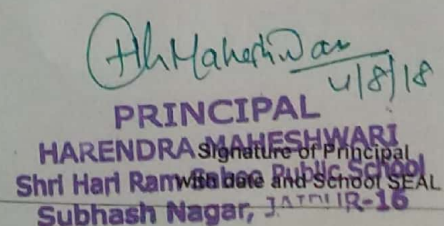 HhMaheshwari
4/8/18
PRINCIPAL
HARENDRA MAHESHWARI
Signature of Principal
Shri Hari Ram Public School
with date and School SEAL
Subhash Nagar, JAIPUR-16